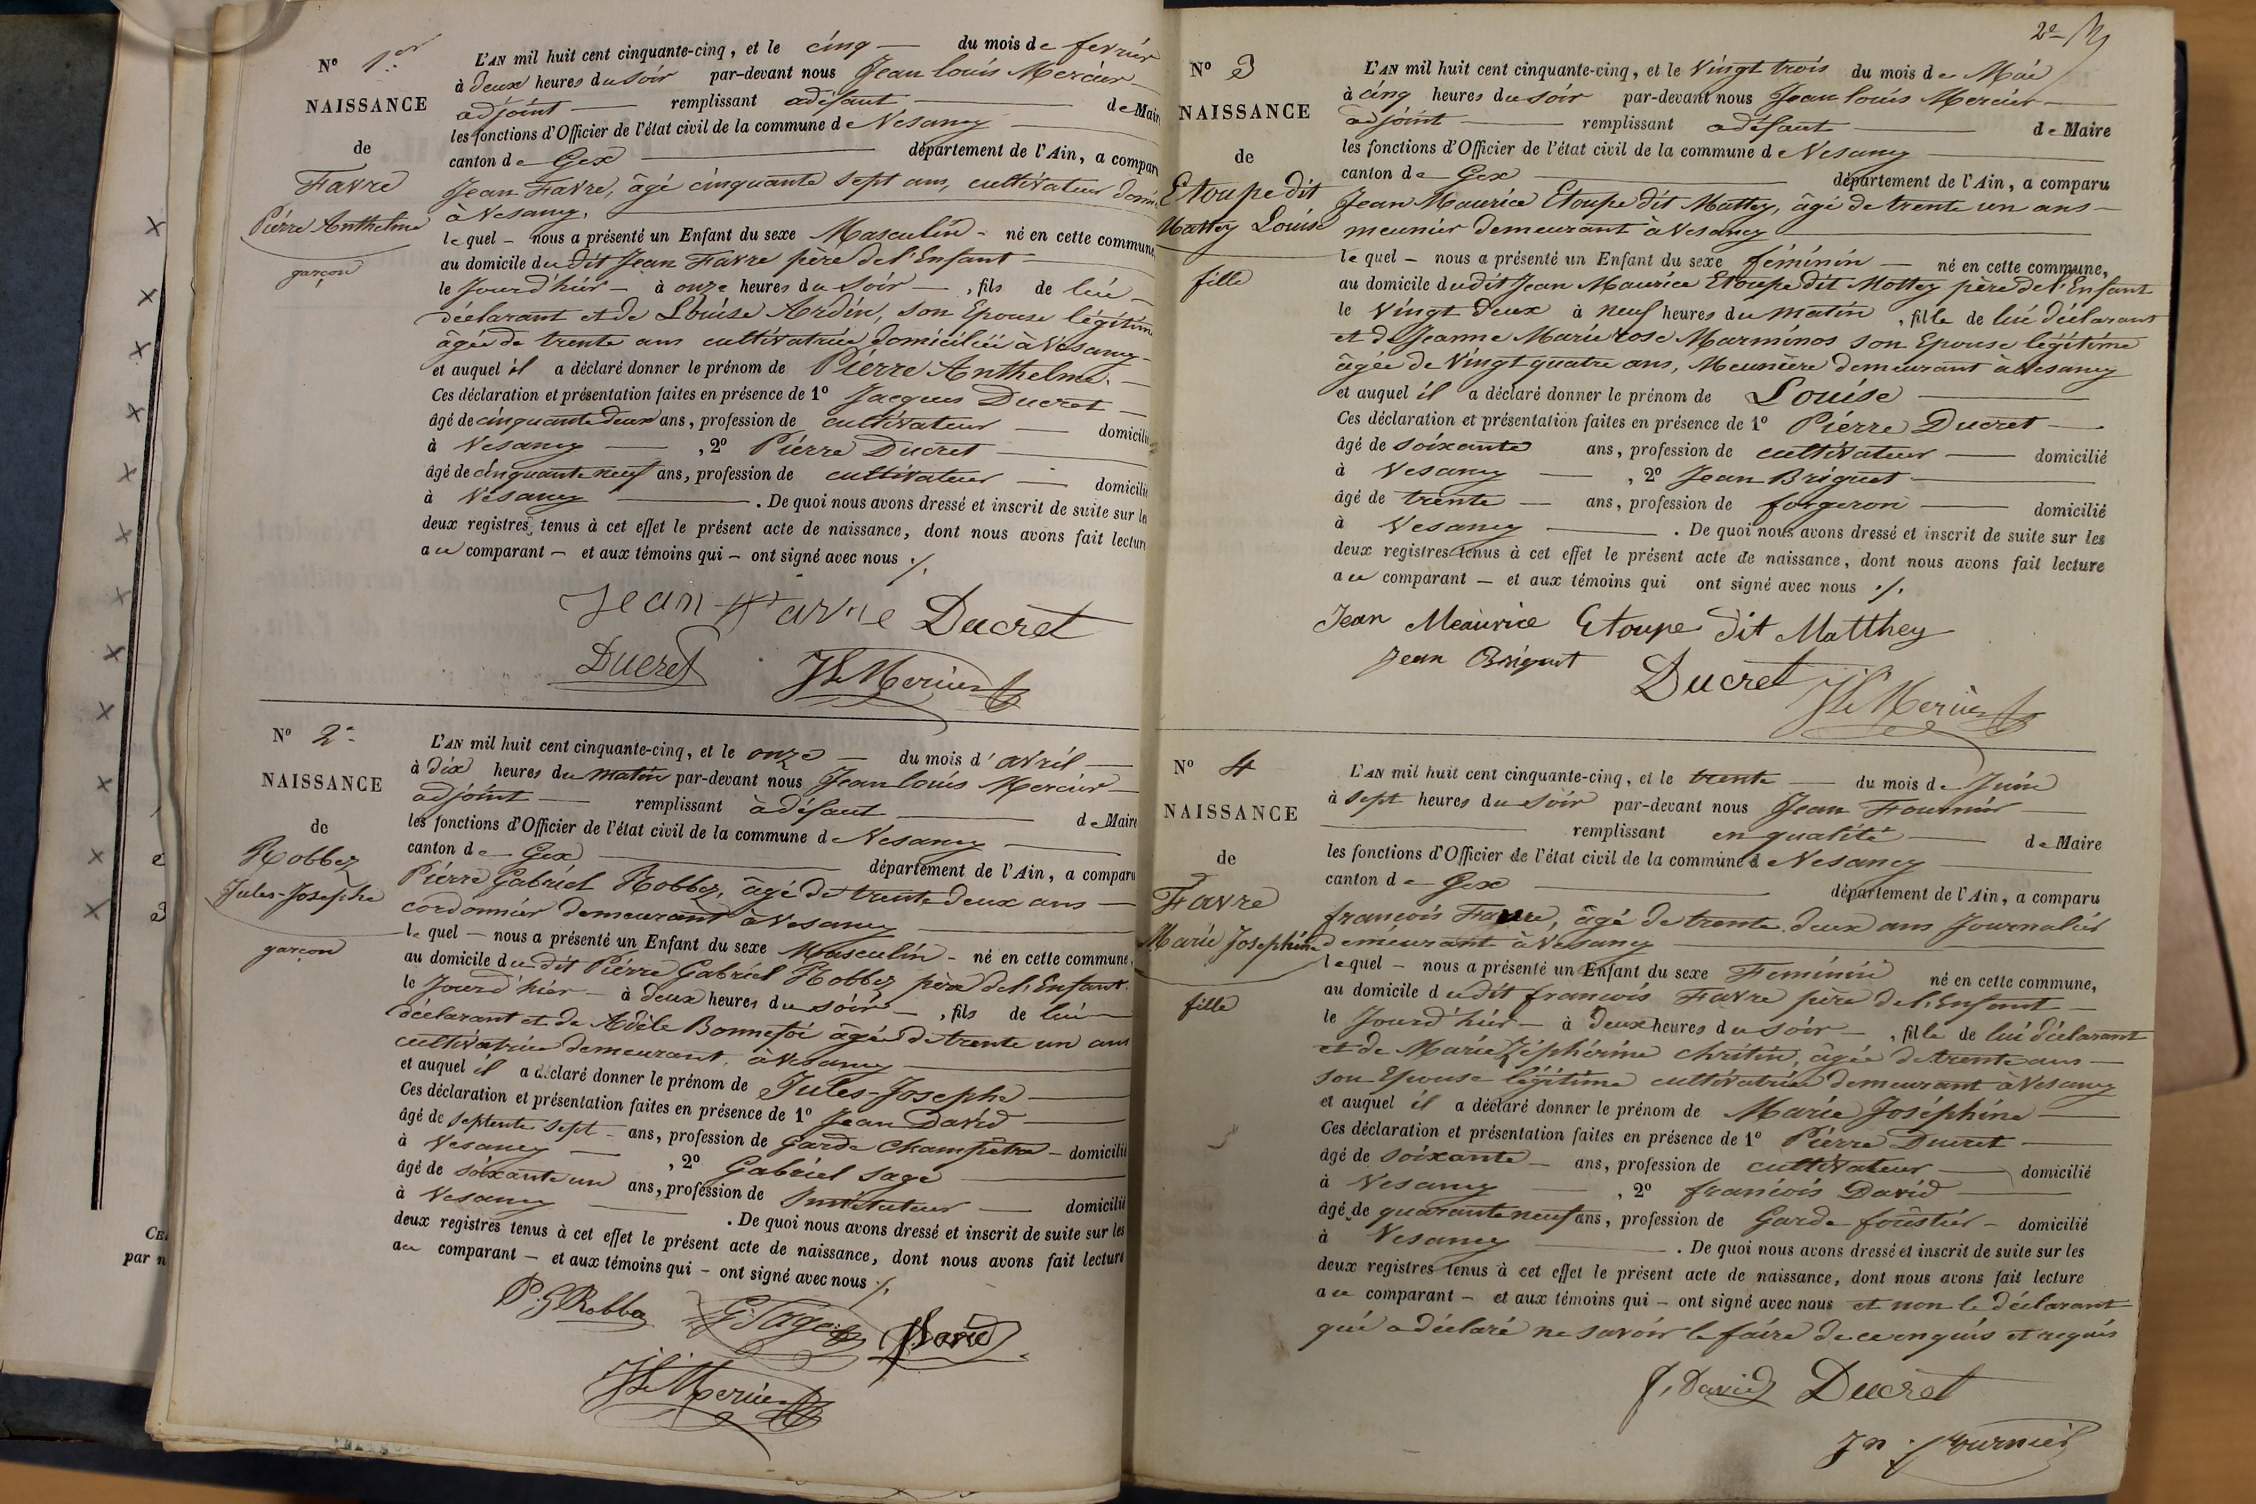 N° 1er
NAISSANCE
de
Favre
Pierre Anthelme
garçon
L'AN mil huit cent cinquante-cinq, et le cinq du mois de fevrier
à deux heures du soir par-devant nous Jean louis Mercier
adjoint remplissant a défaut de Maire
les fonctions d'Officier de l'état civil de la commune de Vesancy
canton de Gex département de l'Ain, a comparu
Jean Favre, âgé cinquante sept ans, cultivateur
à Vesancy,
le quel – nous a présenté un Enfant du sexe Masculin – né en cette commune,
au domicile du dit Jean Favre père de l'Enfant
le Jourd'hier – à onze heures du soir –, fils de lui
déclarant et de Louise Ardin, son Epouse légitime
âgée de trente ans cultivatrice domiciliée à Vesancy
et auquel il a déclaré donner le prénom de Pierre Anthelme.
Ces déclaration et présentation faites en présence de 1° Jacques Ducret
âgé de cinquante deux ans, profession de cultivateur domicilié
à Vesancy, 2° Pierre Ducret
âgé de cinquante neuf ans, profession de cultivateur domicilié
à Vesancy. De quoi nous avons dressé et inscrit de suite sur les
deux registres tenus à cet effet le présent acte de naissance, dont nous avons fait lecture
au comparant – et aux témoins qui – ont signé avec nous ./.
Jean Favre Ducret
Ducret JLs Mercier
N° 2e
NAISSANCE
de
Robbez
Jules-Josephe
garçon
L'AN mil huit cent cinquante-cinq, et le onze du mois d'avril
à dix heures du matin par-devant nous Jean louis Mercier
adjoint remplissant à défaut de Maire
les fonctions d'Officier de l'état civil de la commune de Vesancy
canton de Gex département de l'Ain, a comparu
Pierre Gabriel Robbez, âgé de trente deux ans
cordonnier demeurant à Vesancy
le quel – nous a présenté un Enfant du sexe Masculin – né en cette commune,
au domicile du dit Pierre Gabriel Robbez père de l'Enfant.
le Jourd'hier – à deux heures du soir –, fils de lui
déclarant et de Adèle Bonnefoi âgée de trente un ans
cultivatrice demeurant à Vesancy
et auquel il a déclaré donner le prénom de Jules-Josephe
Ces déclaration et présentation faites en présence de 1° Jean David
âgé de septente sept ans, profession de Garde Champêtre – domicilié
à Vesancy, 2° Gabriel Sage
âgé de soixante un ans, profession de Instituteur domicilié
à Vesancy. De quoi nous avons dressé et inscrit de suite sur les
deux registres tenus à cet effet le présent acte de naissance, dont nous avons fait lecture
au comparant – et aux témoins qui – ont signé avec nous ./.
P. G Robbez G. Sage David
JLs Mercier
2e
N° 3
NAISSANCE
de
Etoupe dit
Mattey Louise
fille
L'AN mil huit cent cinquante-cinq, et le vingt trois du mois de Mai
à cinq heures du soir par-devant nous Jean louis Mercier
adjoint remplissant a défaut de Maire
les fonctions d'Officier de l'état civil de la commune de Vesancy
canton de Gex département de l'Ain, a comparu
Jean Maurice Etoupe dit Mattey, âgé de trente un ans
meunier demeurant à Vesancy
le quel – nous a présenté un Enfant du sexe féminin né en cette commune,
au domicile du dit Jean Maurice Etoupe dit Mottey père de l'Enfant
le vingt deux à neuf heures du matin, fille de lui déclarant
et de Jeanne Marie rose Marminos son Epouse légitime
âgée de vingt quatre ans, Meunière demeurant à Vesancy
et auquel il a déclaré donner le prénom de Louise
Ces déclaration et présentation faites en présence de 1° Pierre Ducret
âgé de soixante ans, profession de cultivateur domicilié
à Vesancy, 2° Jean Briguet
âgé de trente ans, profession de forgeron domicilié
à Vesancy. De quoi nous avons dressé et inscrit de suite sur les
deux registres tenus à cet effet le présent acte de naissance, dont nous avons fait lecture
au comparant – et aux témoins qui ont signé avec nous ./.
Jean Meaurice Etoupe dit Matthey
Jean Briguet Ducret JLs Mercier
N° 4
NAISSANCE
de
Favre
Marie Josephine
fille
L'AN mil huit cent cinquante-cinq, et le trente du mois de Juin
à sept heures du soir par-devant nous Jean Fournier
remplissant en qualité de Maire
les fonctions d'Officier de l'état civil de la commune de Vesancy
canton de Gex département de l'Ain, a comparu
françois Favre, âgé de trente deux ans Journalier
demeurant à Vesancy
le quel – nous a présenté un Enfant du sexe Feminin né en cette commune,
au domicile du dit francois Favre père de l'Enfant
le Jourd'hier – à deux heures du soir –, fille de lui déclarant
et de Marie Zéphérine chritin, âgée de trente ans
son Epouse légitime cultivatrice demeurant à Vesancy
et auquel il a déclaré donner le prénom de Marie Joséphine
Ces déclaration et présentation faites en présence de 1° Pierre Ducret
âgé de soixante ans, profession de cultivateur domicilié
à Vesancy, 2° francois David
âgé de quarante neuf ans, profession de Garde forestier – domicilié
à Vesancy. De quoi nous avons dressé et inscrit de suite sur les
deux registres tenus à cet effet le présent acte de naissance, dont nous avons fait lecture
au comparant – et aux témoins qui – ont signé avec nous et non le déclarant
qui a déclaré ne savoir le faire de ce enquis et requis
f, David Ducret
Jn. fournier
par n